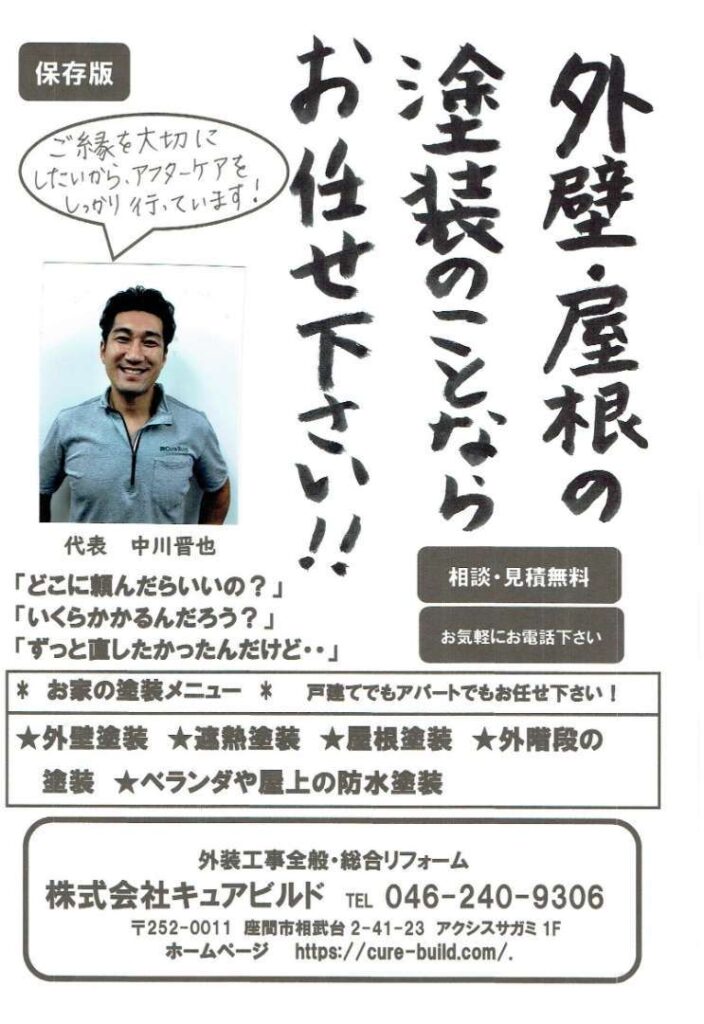 保存版
外壁・屋根の
塗装のことなら
お任せ下さい!!
ご縁を大切に
したいから、アフターケアを
しっかり行っています!
代表 中川晋也
「どこに頼んだらいいの？」
「いくらかかるんだろう？」
「ずっと直したかったんだけど・・」
相談・見積無料
お気軽にお電話下さい
* お家の塗装メニュー * 戸建てでもアパートでもお任せ下さい！
★外壁塗装 ★遮熱塗装 ★屋根塗装 ★外階段の
塗装 ★ベランダや屋上の防水塗装
外装工事全般・総合リフォーム
株式会社キュアビルド TEL 046-240-9306
〒252-0011 座間市相武台2-41-23 アクシスサガミ1F
ホームページ https://cure-build.com/.